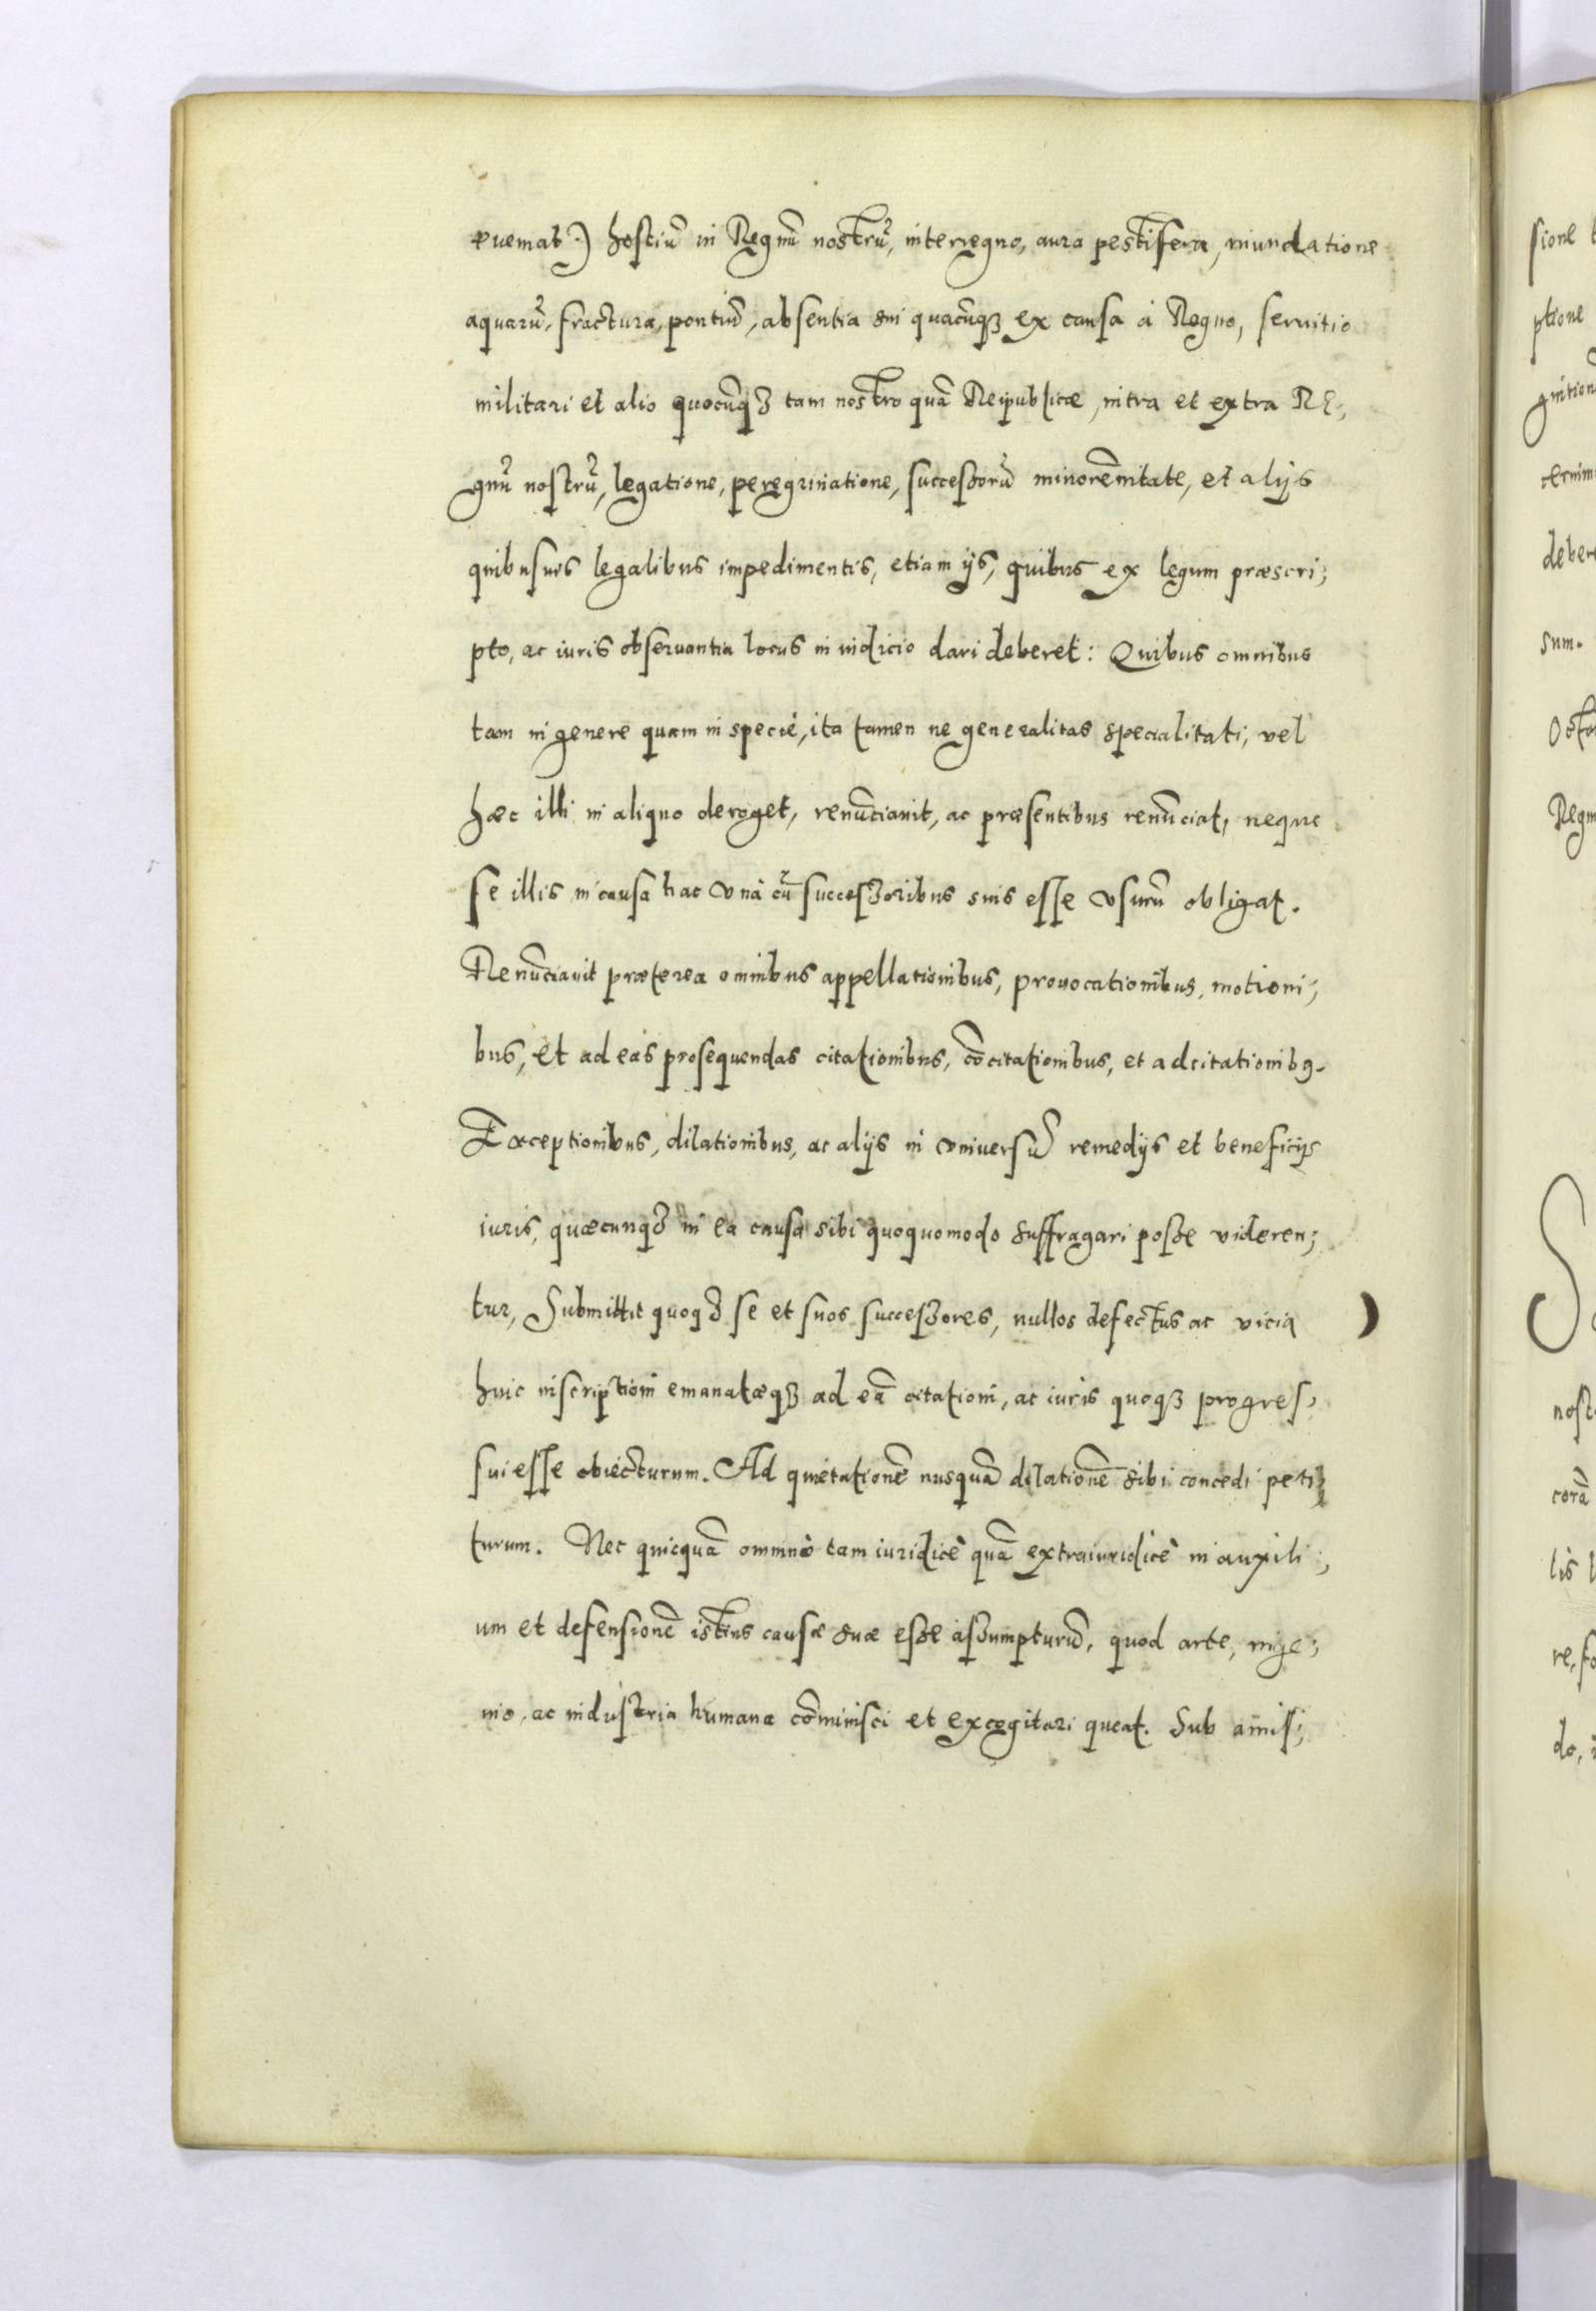 euemat:) hostiũ in Regnũ nostrũ, interregno, aura pestifera, inundatione
aquarũ, fractura, pontiũ, absentia sui quacũq3 ex causa à Regno, seruitio
militari et alio quocũq3 tam nostro quã Reipublicæ, intra et extra Re;
gnũ nostrũ, legatione, peregrinatione, successorũ minorẽnitate, et alijs
quibusuis legalibus impedimentis, etiam ijs, quibus ex legum præscri;
pto, ac iuris obseruantia locus in iudicio dari deberet: Quibus omnibus
tam in genere quam in specie, ita tamen ne generalitas specialitati, vel
hæc illi in aliquo deroget, renũciauit, ac præsentibus renũciat, neque
se illis in causa hac vnà cũ successoribus suis esse vsurũ obligat.
Renũciauit præterea omnibus appellationibus, prouocationibus, motioni;
bus, et ad eas prosequendas citationibus, cõcitationibus, et adcitationibꝯ.
Exceptionibus, dilationibus, ac alijs in vniuersũ remedijs et beneficijs
iuris, quæcunq3 in ea causa sibi quoquomodo suffragari posse videren;
tur, Submittit quoq3 se et suos successores, nullos defectus ac vicia
huic inscriptioni emanatæq3 ad eã citationi, ac iuris quoq3 progres;
sui esse obiecturum. Ad quietationẽ nusquã dilationẽ sibi concedi peti;
turum. Nec quicquã omninò tam iuridicè quã extraiuridicè in auxili;
um et defensionẽ istius causæ suæ esse assumpturũ, quod arte, inge;
nio, ac industria humana cõminisci et excogitari queat. Sub amis;
sione
ptione
gnition
debere
sum.
Regn
S
nost
corã
lis
re, fo
do,